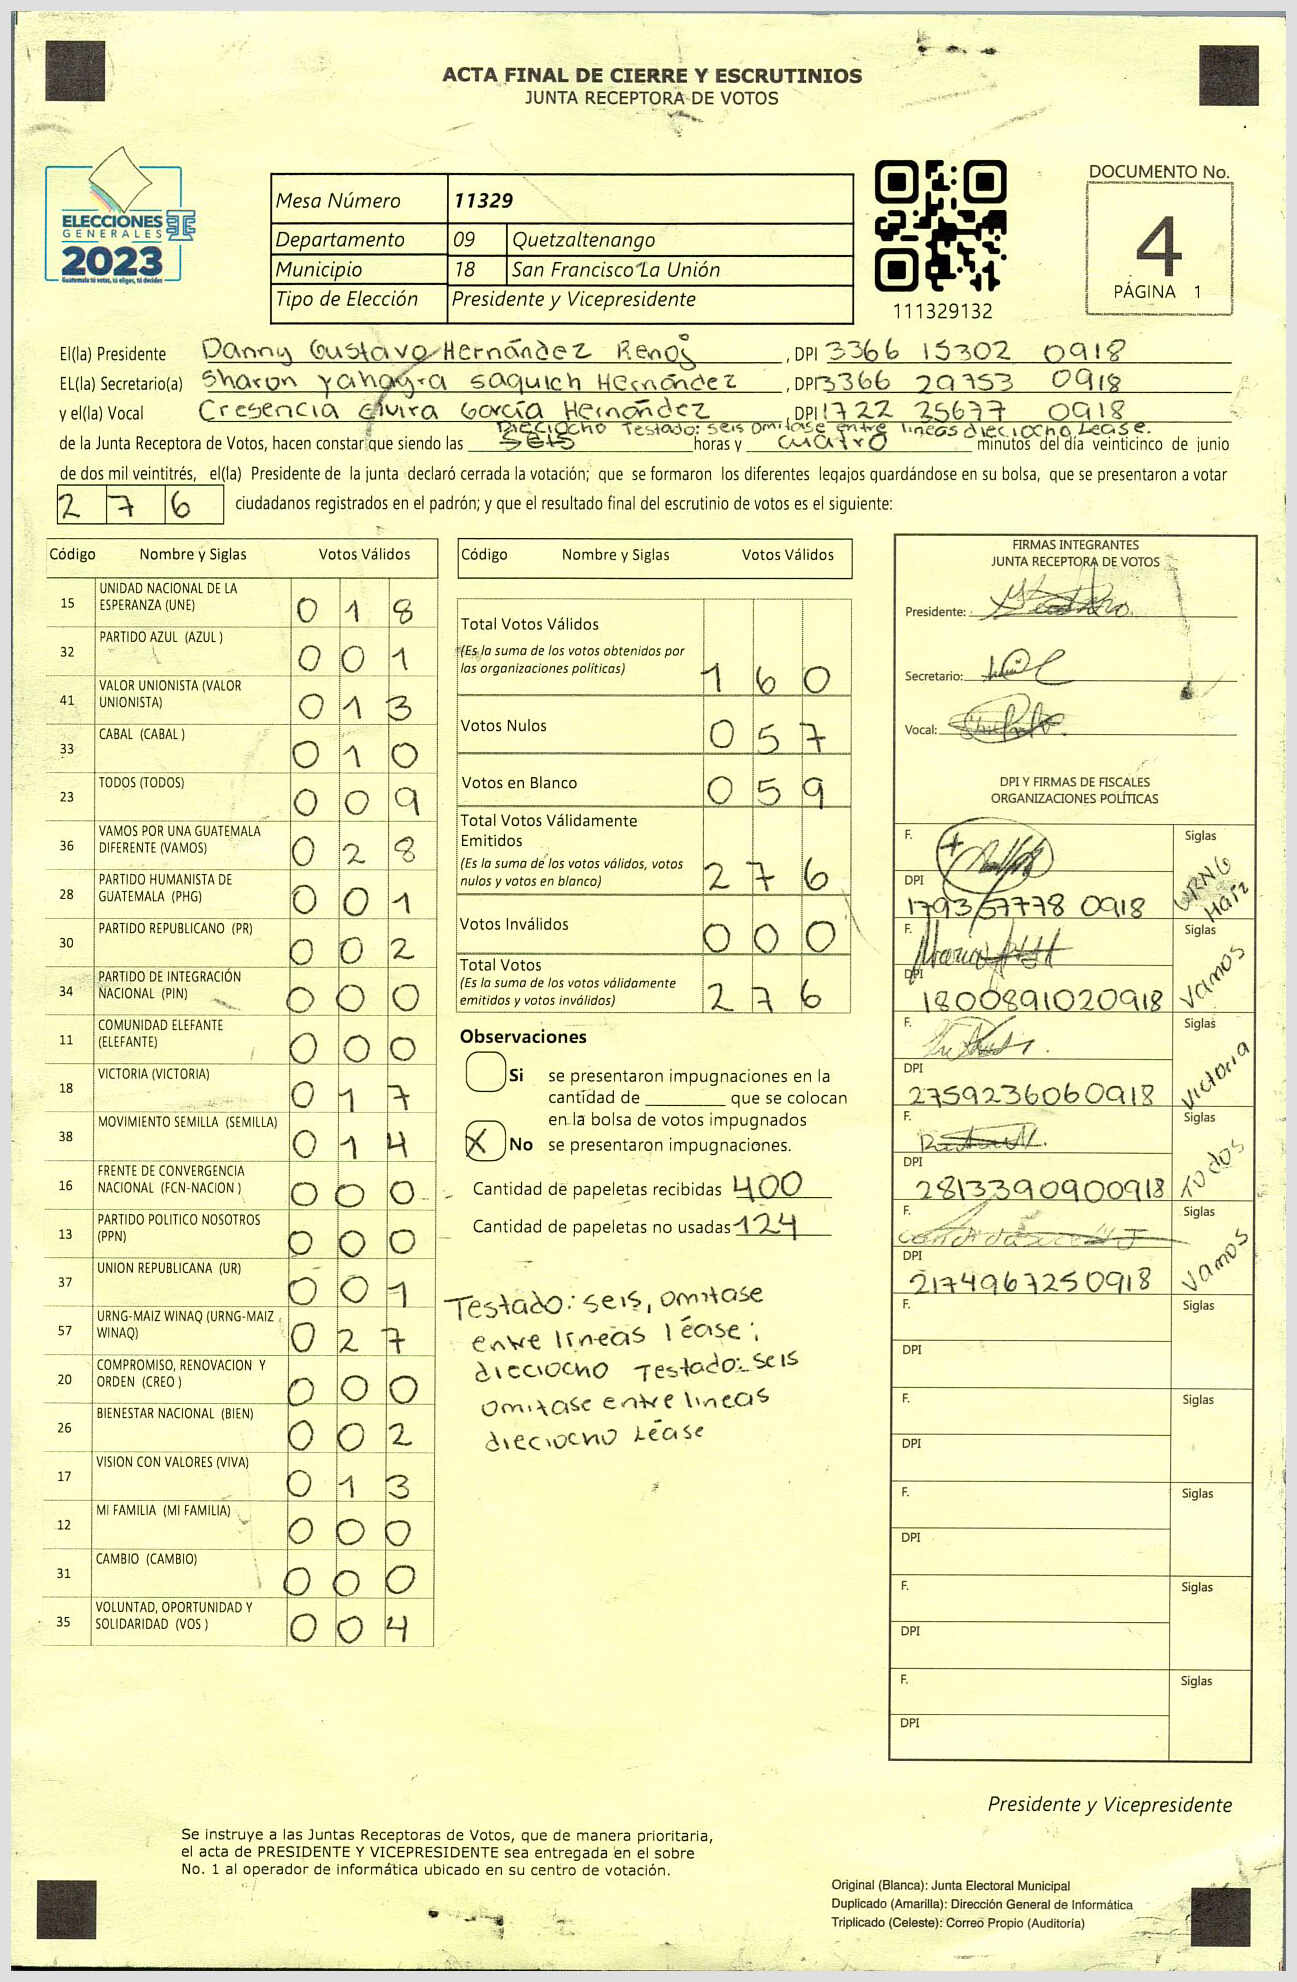 ACTA FINAL DE CIERRE Y ESCRUTINIOS
JUNTA RECEPTORA DE VOTOS
ELECCIONES
GENERALES
2023
Guatemala tú votas, tú eliges, tú decides
Mesa Número 11329
Departamento 09 Quetzaltenango
Municipio 18 San Francisco La Unión
Tipo de Elección Presidente y Vicepresidente
111329132
DOCUMENTO No.
4
PÁGINA 1
El(la) Presidente Danny Gustavo Hernández Renoj, DPI 3366 15302 0918
EL(la) Secretario(a) Sharon Yahayra Saquich Hernández, DPI 3366 29753 0918
y el(la) Vocal Cresencia Elvira García Hernández, DPI 1722 25677 0918
Dieciocho Testado: seis omitase entre lineas dieciocho Léase.
de la Junta Receptora de Votos, hacen constar que siendo las seis horas y cuatro minutos del día veinticinco de junio
de dos mil veintitrés, el(la) Presidente de la junta declaró cerrada la votación; que se formaron los diferentes legajos guardándose en su bolsa, que se presentaron a votar
276 ciudadanos registrados en el padrón; y que el resultado final del escrutinio de votos es el siguiente:
Código Nombre y Siglas Votos Válidos
15 UNIDAD NACIONAL DE LA ESPERANZA (UNE) 018
32 PARTIDO AZUL (AZUL ) 001
41 VALOR UNIONISTA (VALOR UNIONISTA) 013
33 CABAL (CABAL ) 010
23 TODOS (TODOS) 009
36 VAMOS POR UNA GUATEMALA DIFERENTE (VAMOS) 028
28 PARTIDO HUMANISTA DE GUATEMALA (PHG) 001
30 PARTIDO REPUBLICANO (PR) 002
34 PARTIDO DE INTEGRACIÓN NACIONAL (PIN) 000
11 COMUNIDAD ELEFANTE (ELEFANTE) 000
18 VICTORIA (VICTORIA) 017
38 MOVIMIENTO SEMILLA (SEMILLA) 014
16 FRENTE DE CONVERGENCIA NACIONAL (FCN-NACION ) 000
13 PARTIDO POLITICO NOSOTROS (PPN) 000
37 UNION REPUBLICANA (UR) 001
57 URNG-MAIZ WINAQ (URNG-MAIZ WINAQ) 027
20 COMPROMISO, RENOVACION Y ORDEN (CREO ) 000
26 BIENESTAR NACIONAL (BIEN) 002
17 VISION CON VALORES (VIVA) 013
12 MI FAMILIA (MI FAMILIA) 000
31 CAMBIO (CAMBIO) 000
35 VOLUNTAD, OPORTUNIDAD Y SOLIDARIDAD (VOS ) 004
Código Nombre y Siglas Votos Válidos
Total Votos Válidos
(Es la suma de los votos obtenidos por
las organizaciones políticas) 160
Votos Nulos 057
Votos en Blanco 059
Total Votos Válidamente
Emitidos
(Es la suma de los votos válidos, votos
nulos y votos en blanco) 276
Votos Inválidos 000
Total Votos
(Es la suma de los votos válidamente
emitidos y votos inválidos) 276
Observaciones
Si se presentaron impugnaciones en la
cantidad de ________ que se colocan
en la bolsa de votos impugnados
X No se presentaron impugnaciones.
Cantidad de papeletas recibidas 400
Cantidad de papeletas no usadas 124
Testado: seis, omitase
entre líneas léase:
dieciocho Testado: seis
omitase entre lineas
dieciocho Léase
FIRMAS INTEGRANTES
JUNTA RECEPTORA DE VOTOS
Presidente:
Secretario:
Vocal:
DPI Y FIRMAS DE FISCALES
ORGANIZACIONES POLÍTICAS
F. Siglas
DPI 1793 57778 0918 URNG Maiz
F. Siglas
DPI 1800891020918 Vamos
F. Siglas
DPI 2759236060918 Victoria
F. Siglas
DPI 2813390900918 Todos
F. Siglas
DPI 2174967250918 Vamos
F. Siglas
DPI
F. Siglas
DPI
F. Siglas
DPI
F. Siglas
DPI
F. Siglas
DPI
Presidente y Vicepresidente
Se instruye a las Juntas Receptoras de Votos, que de manera prioritaria,
el acta de PRESIDENTE Y VICEPRESIDENTE sea entregada en el sobre
No. 1 al operador de informática ubicado en su centro de votación.
Original (Blanca): Junta Electoral Municipal
Duplicado (Amarilla): Dirección General de Informática
Triplicado (Celeste): Correo Propio (Auditoria)